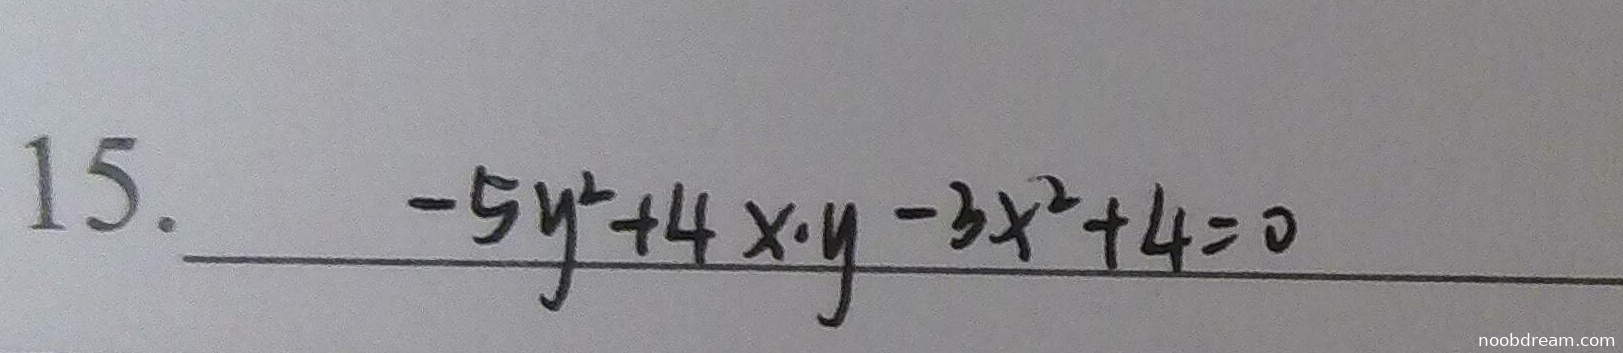 15. -5y²+4x·y-3x²+4=0
noobdream.com